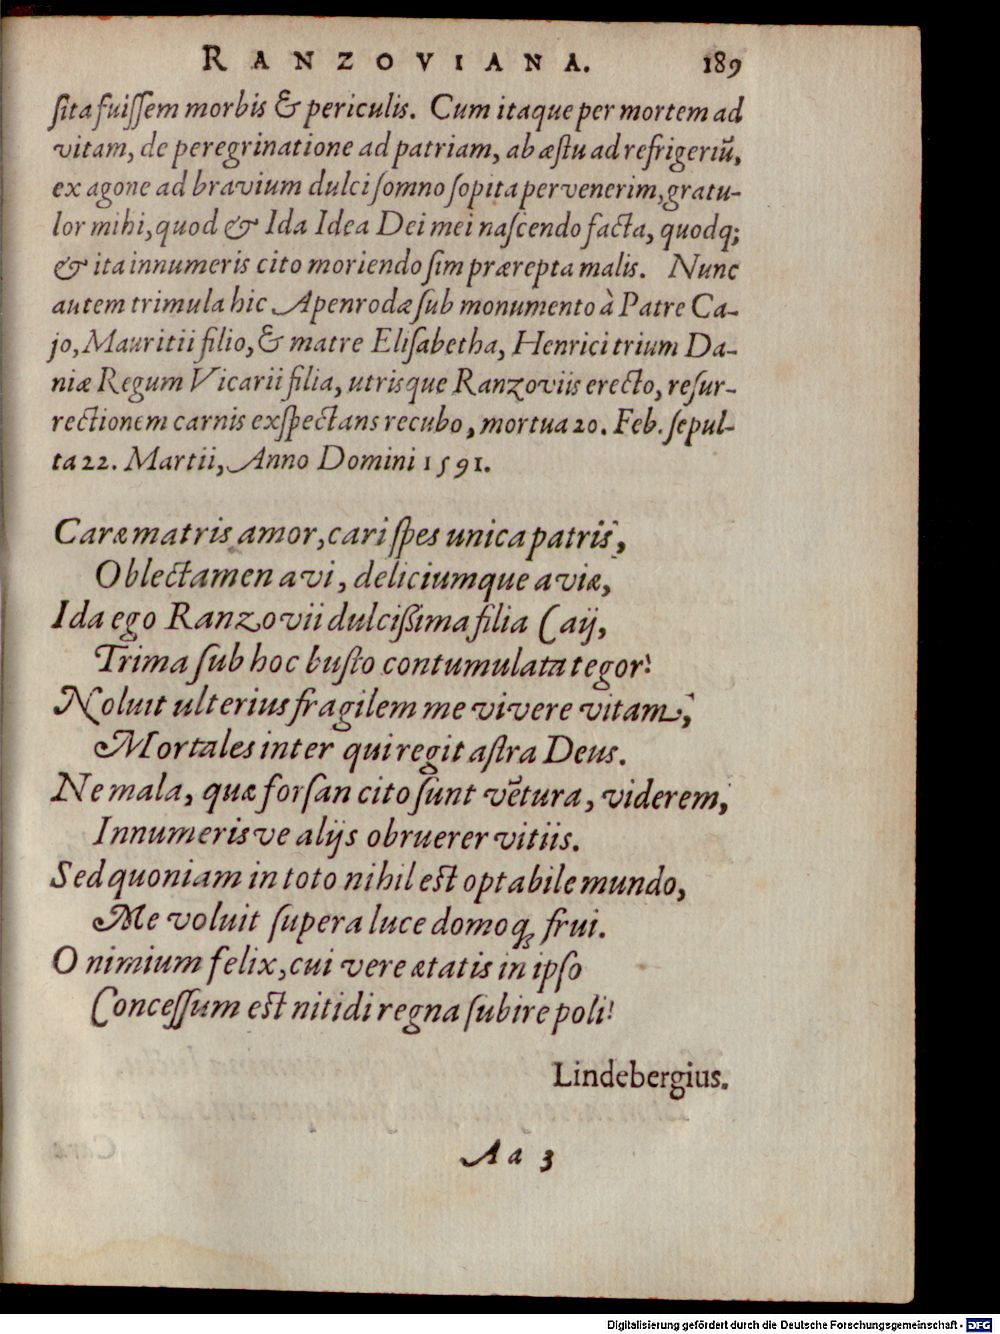 RANZOVIANA. 189
ſita fuiſſem morbis & periculis. Cum itaque per mortem ad
vitam, de peregrinatione ad patriam, ab æſtu ad refrigeriū,
ex agone ad bravium dulci ſomno ſopita pervenerim, gratu-
lor mihi, quod & Ida Idea Dei mei naſcendo facta, quodq;
& ita innumeris cito moriendo ſim prærepta malis. Nunc
autem trimula hic Apenrodæ ſub monumento à Patre Ca-
jo, Mauritii filio, & matre Eliſabetha, Henrici trium Da-
niæ Regum Vicarii filia, utrisque Ranzoviis erecto, reſur-
rectionem carnis exſpectans recubo, mortua 20. Feb. ſepul-
ta 22. Martii, Anno Domini 1591.
Caræ matris amor, cari ſpes unica patris,
Oblectamen avi, deliciumque aviæ,
Ida ego Ranzovii dulciſſima filia Caij,
Trima ſub hoc buſto contumulata tegor:
Noluit ulterius fragilem me vivere vitam,
Mortales inter qui regit aſtra Deus.
Ne mala, quæ forſan cito ſunt vētura, viderem,
Innumerisve alijs obruerer vitiis.
Sed quoniam in toto nihil est optabile mundo,
Me voluit ſupera luce domoq; frui.
O nimium felix, cui vere ætatis in ipſo
Conceſſum est nitidi regna ſubire poli!
Lindebergius.
Aa 3
Digitalisierung gefördert durch die Deutsche Forschungsgemeinschaft - DFG